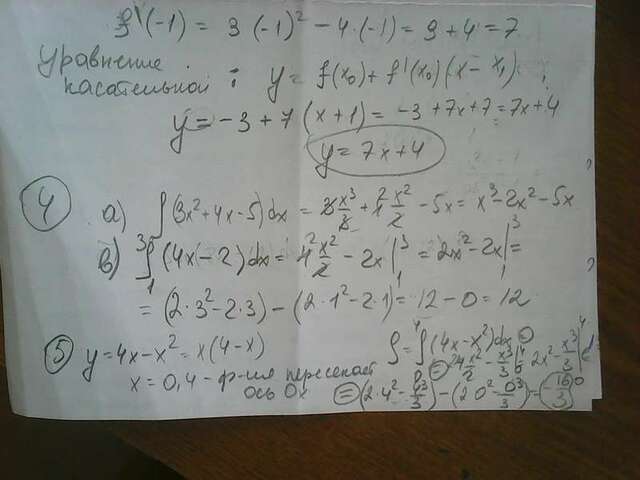 f'(-1) = 3(-1)² - 4·(-1) = 3 + 4 = 7
Уравнение
касательной : y = f(x₀) + f'(x₀)(x - x₁) ;
y = -3 + 7(x + 1) = -3 + 7x + 7 = 7x + 4
y = 7x + 4
4 а) ∫(3x² + 4x - 5)dx = 3 x³/3 + 4² x²/2 - 5x = x³ - 2x² - 5x
в) ³∫₁ (4x - 2)dx = 4² x²/2 - 2x |³₁ = 2x² - 2x |³₁ =
= (2·3² - 2·3) - (2·1² - 2·1) = 12 - 0 = 12
5 y = 4x - x² = x(4 - x)
x = 0,4 - ф-ия пересекает
ось Ox
S = ∫⁴₀ (4x - x²)dx =
= 4 x²/2 - x³/3 |⁴₀ 2x² - x³/3 |⁴₀
= (2·4² - 3/3) - (2·0² - 0³/3) = -16/3